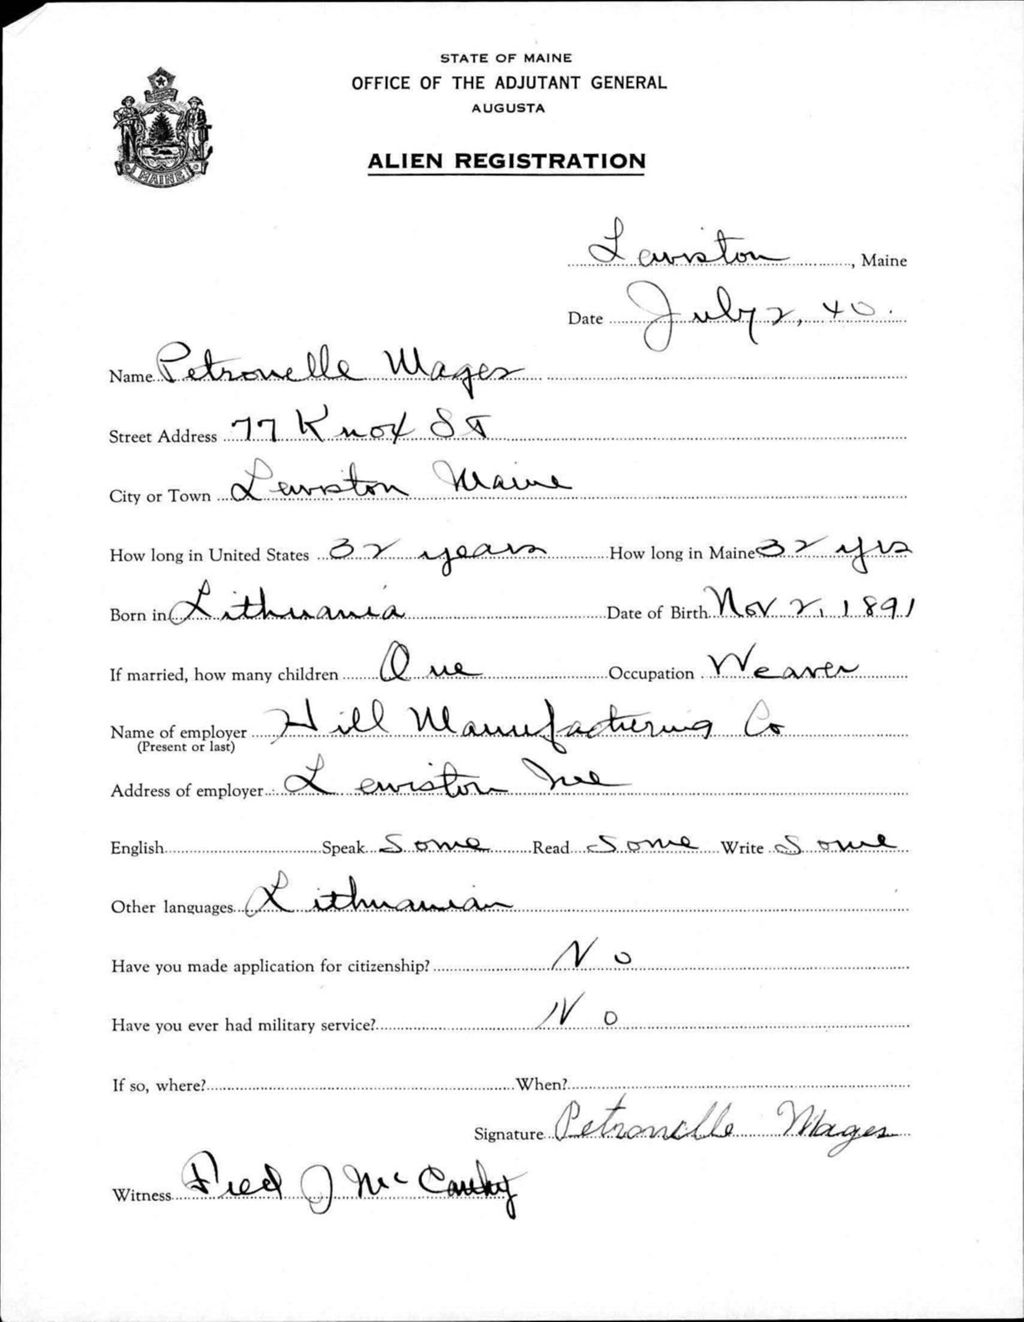 STATE OF MAINE
OFFICE OF THE ADJUTANT GENERAL
AUGUSTA
ALIEN REGISTRATION
MAINE
Lewiston, Maine
Date July 2, 40.
Name Petronelle Mages
Street Address 77 Knox St
City or Town Lewiston Maine
How long in United States 32 years How long in Maine 32 yrs
Born in Lithuania Date of Birth Nov 2, 1891
If married, how many children One Occupation Weaver
Name of employer Hill Manufacturing Co
(Present or last)
Address of employer Lewiston Me
English Speak Some Read Some Write Some
Other languages Lithuanian
Have you made application for citizenship? No
Have you ever had military service? No
If so, where? When?
Signature Petronelle Mages
Witness Fred J McC